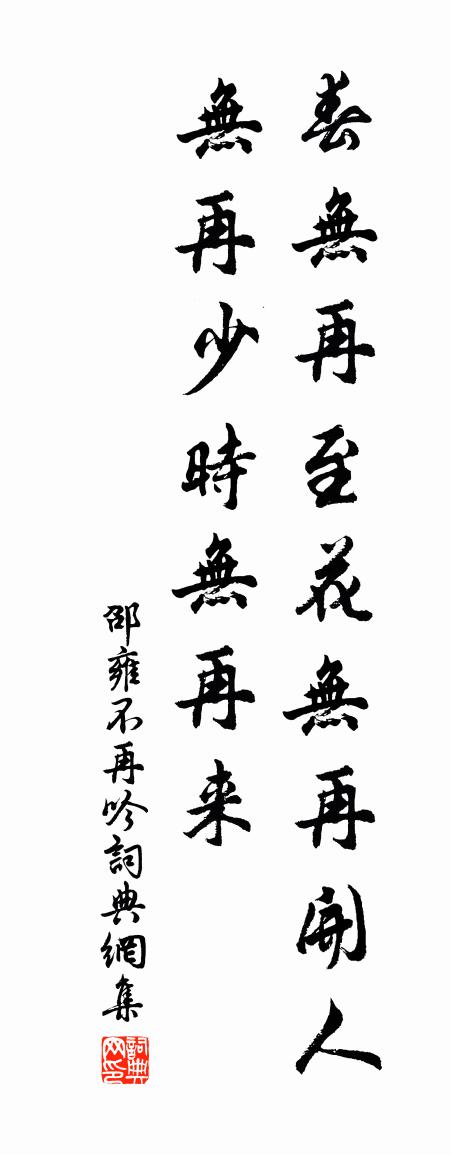 春無再至花無再開人
無再少時無再来
邵雍不再吟詞典網集
詞典网印